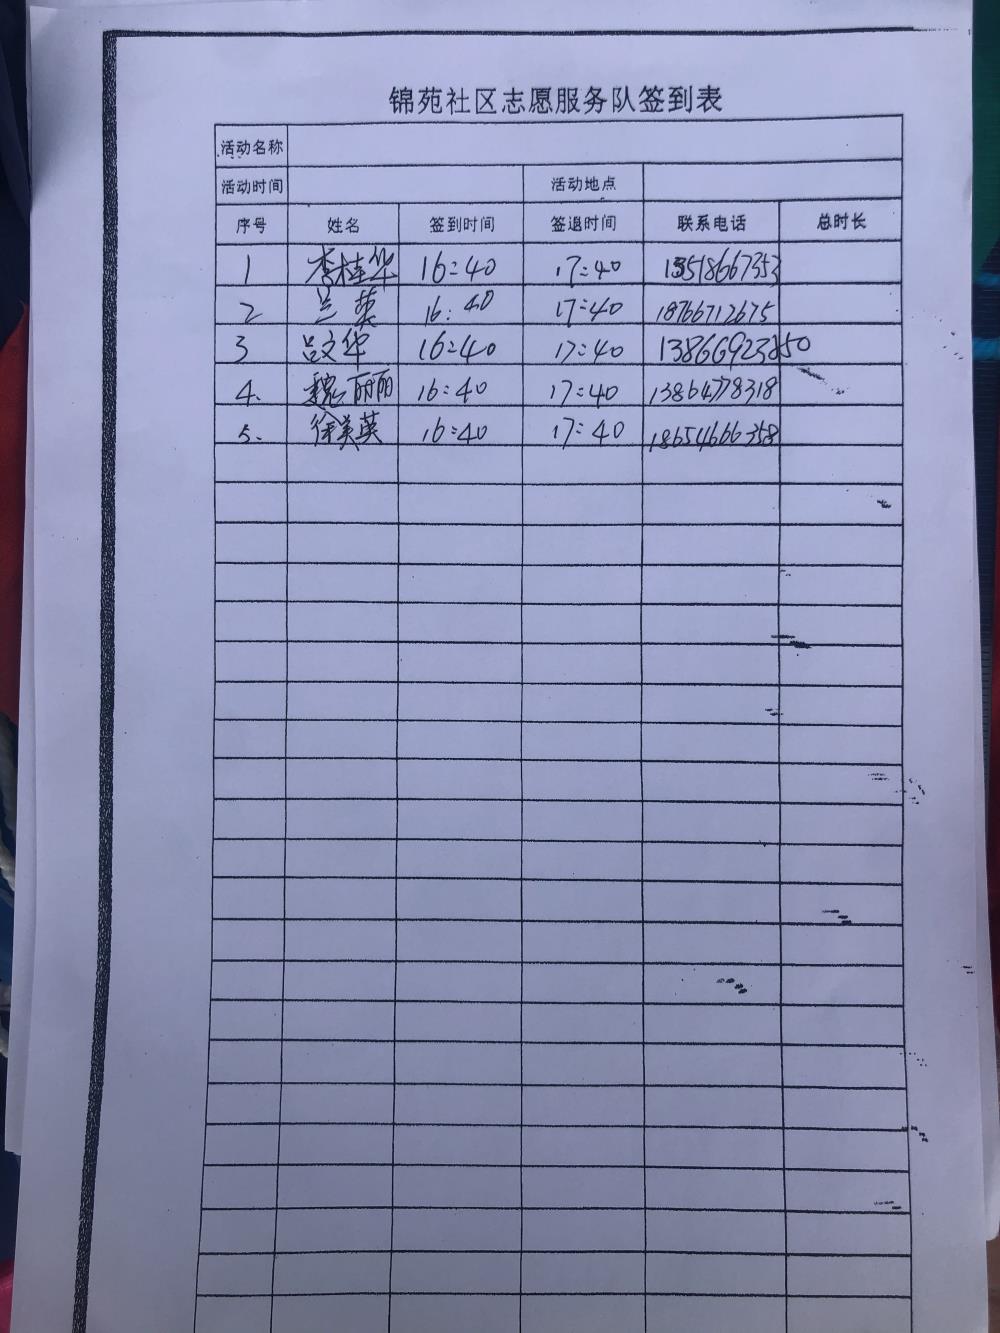 锦苑社区志愿服务队签到表
活动名称
活动时间 活动地点
序号 姓名 签到时间 签退时间 联系电话 总时长
1 李桂华 16:40 17:40 13518667353
2 兰英 16:40 17:40 18766712675
3 吕文华 16:40 17:40 13866923850
4. 魏丽丽 16:40 17:40 13864778318
5. 徐美英 16:40 17:40 18654666358